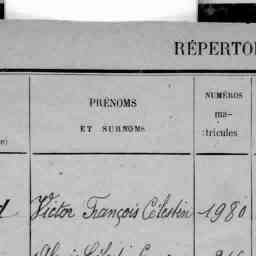 RÉPERTO
PRÉNOMS
ET SURNOMS
NUMÉROS
ma-
tricules
Victor François Célestin 1980